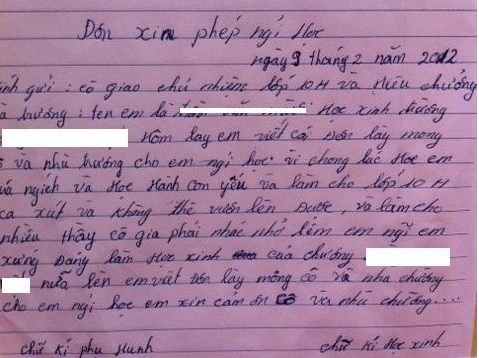 Dón xin phép ngỉ Học
ngày 9 tháng 2 năm 2012
ính gửi : cô giao chủ nhiệm lớp 10 H và Hiêu chưởng
à trưởng : ten em là Học xinh trưởng
Hôm lay em viết cái Dón lày mong
ô và nhà trưởng cho em ngỉ học vì chong lúc Học em
và Học Hành con yếu và làm cho lớp 10 H
ca xút và không thể vươn lên Được, và làm cho
nhiều thầy cô gia phải nhac nhở lêm em ngĩ em
xưng Đang làm Học xinh của chưởng
nữa lên em viết Dón lày mông cô và nha chưởng
cho em ngỉ học em xin cảm ơn Cô và nhu chưởng....
chữ kí phu Hunh
chữ kí Học xinh